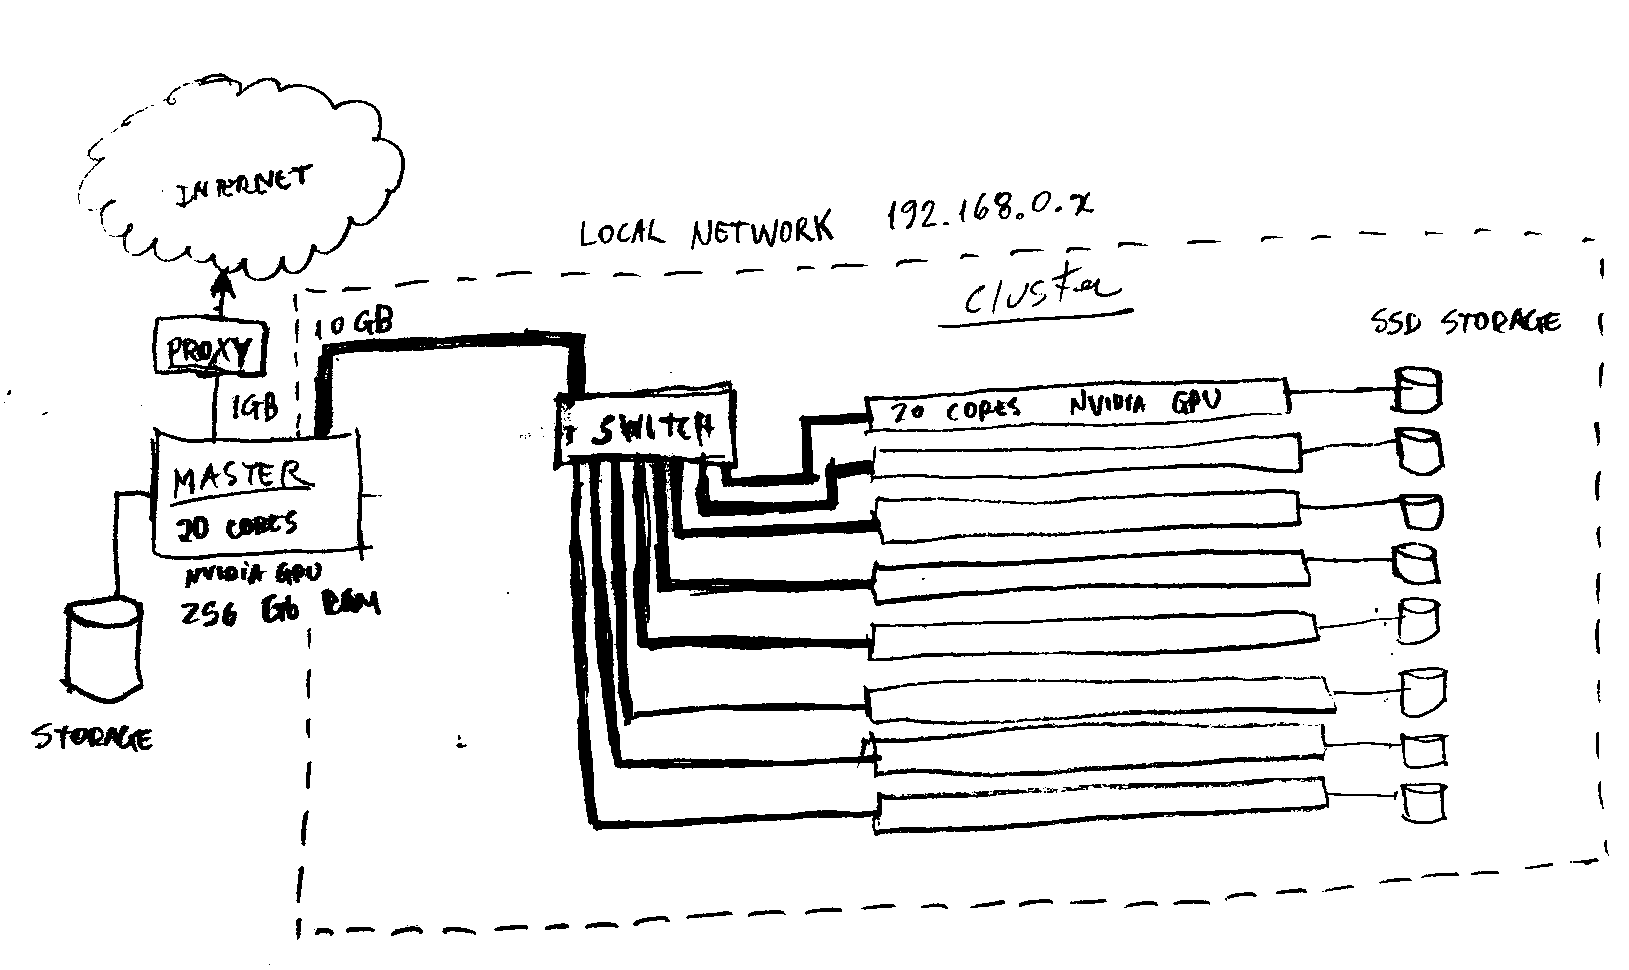 INTERNET
LOCAL NETWORK 192.168.0.x
Cluster
SSD STORAGE
10GB
PROXY
1GB
SWITCH
20 CORES NVIDIA GPU
MASTER
20 CORES
NVIDIA GPU
256 Gb RAM
STORAGE